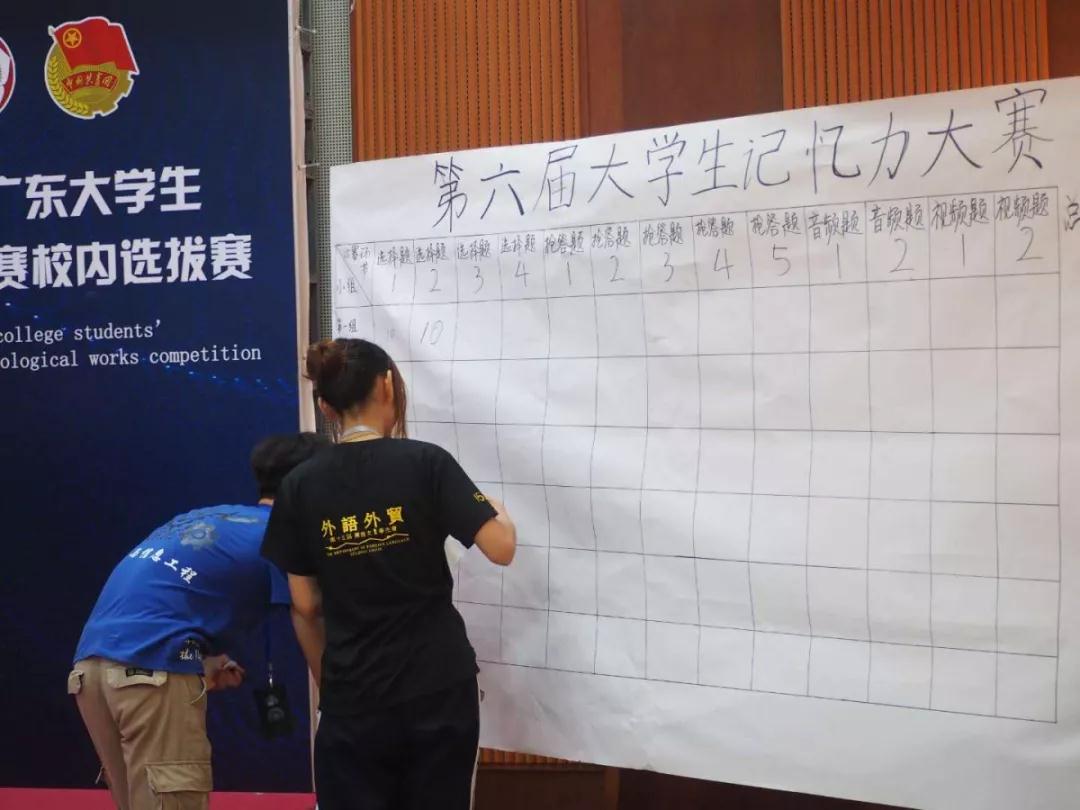 中国共青团
广东大学生
赛校内选拔赛
college students'
ological works competition
第六届大学生记忆力大赛
环
节
选择题 选择题 选择题 选择题 抢答题 抢答题 抢答题 抢答题 抢答题 音频题 音频题 视频题 视频题
1 2 3 4 1 2 3 4 5 1 2 1 2
小组
第一组 10 10
外語外貿
信息工程